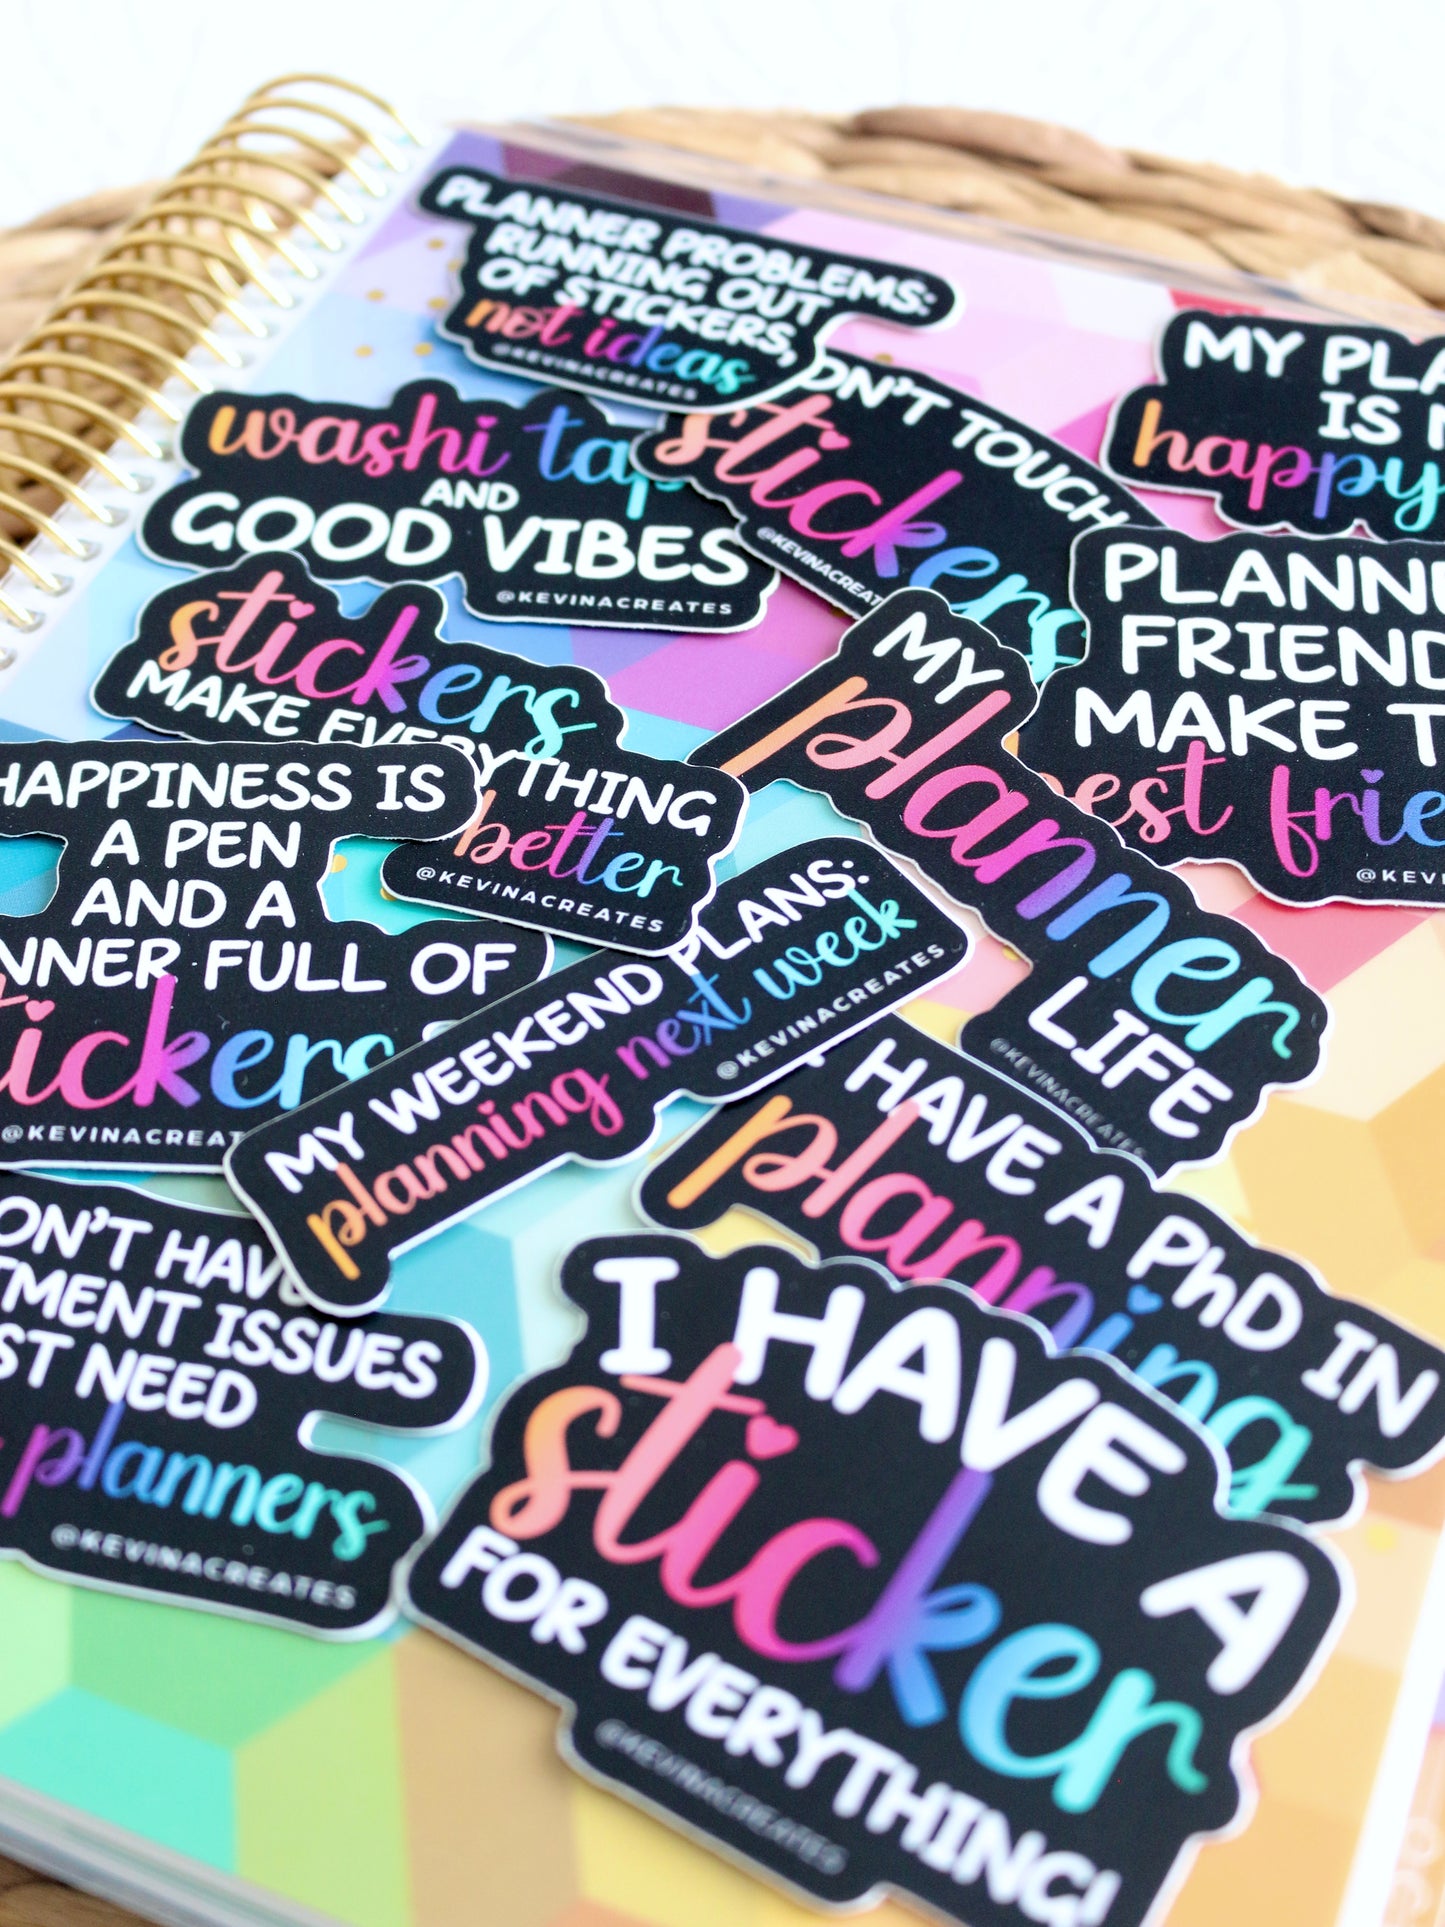 PLANNER PROBLEMS:
RUNNING OUT
OF STICKERS,
not ideas
@KEVINACREATES
DON'T TOUCH
stickers
@KEVINACREATES
MY PLA
IS
happy
washi tap
AND
GOOD VIBES
@KEVINACREATES
PLANN
FRIEND
MAKE T
best frie
@KEV
stickers
MAKE EVERYTHING
better
@KEVINACREATES
MY
planner
LIFE
@KEVINACREATES
HAPPINESS IS
A PEN
AND A
NNER FULL OF
tickers
@KEVINACREAT
MY WEEKEND PLANS:
planning next week
@KEVINACREATES
I HAVE A PhD IN
planning
ON'T HAV
TMENT ISSUES
ST NEED
planners
@KEVINACREATES
I HAVE A
sticker
FOR EVERYTHING!
@KEVINACREATES